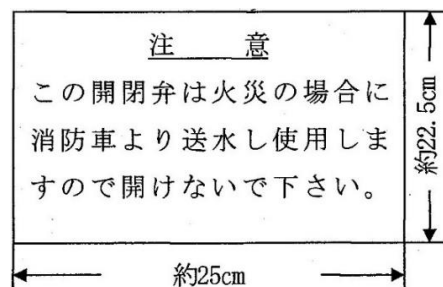 注　意
この開閉弁は火災の場合に
消防車より送水し使用しま
すので開けないで下さい。
約22.5cm
約25cm